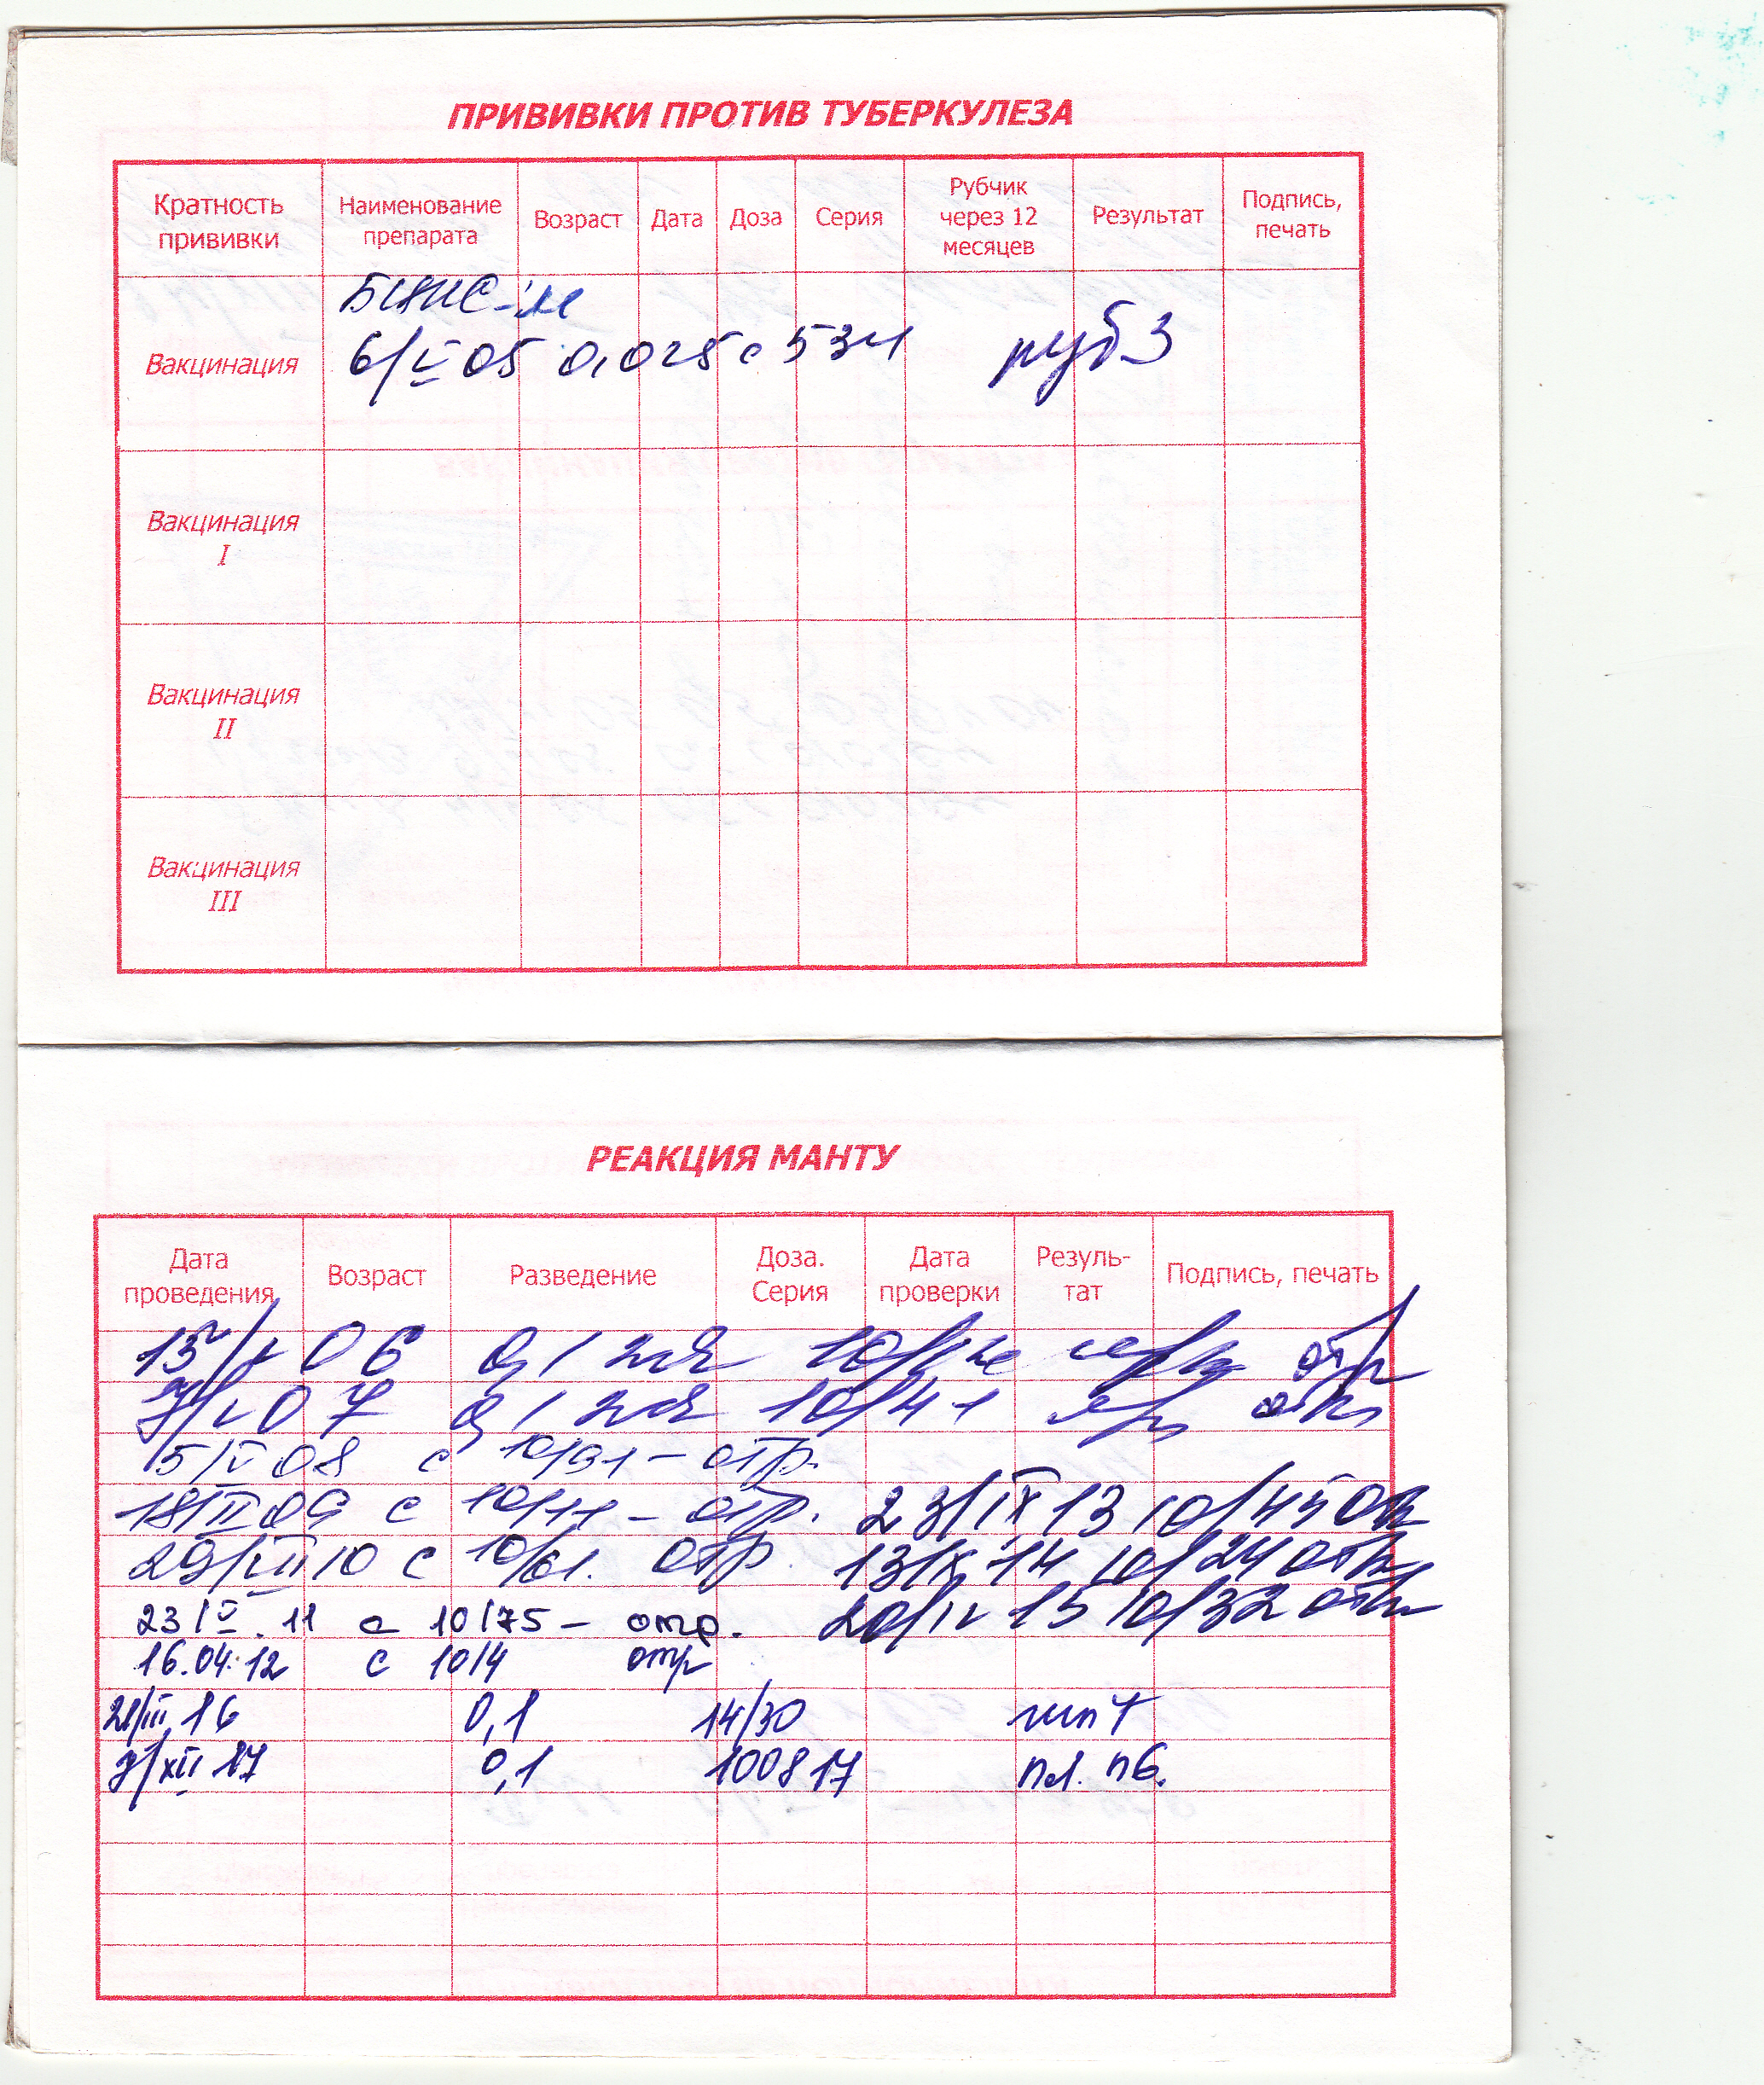 ПРИВИВКИ ПРОТИВ ТУБЕРКУЛЕЗА
Кратность прививки Наименование препарата Возраст Дата Доза Серия Рубчик через 12 месяцев Результат Подпись, печать
БЦЖ-М
Вакцинация 6/V 05 0,025 с 534 руб 3
Вакцинация I
Вакцинация II
Вакцинация III
РЕАКЦИЯ МАНТУ
Дата проведения Возраст Разведение Доза. Серия Дата проверки Резуль-тат Подпись, печать
06 0,1 отр
07 0,1 10/41
15/V 08 с 10/91 - отр.
18/II 09 с - отр. 23/IX 13 10/45
29/VII 10 с 10/61. отр 14 10/24 отр
23/V. 11 с 10/75 - отр. 20/IV 15 10/32 отр
16.04.12 с 10/4 отр
21/III 16 0,1 14/30
7/XII 17 0,1 100817 п6.